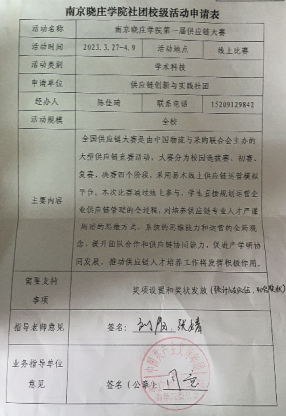 南京晓庄学院社团校级活动申请表
活动名称 南京晓庄学院第一届供应链大赛
活动时间 2023.3.27-4.9 活动地点 线上比赛
活动类别 学术科技
申请单位 供应链创新与实践社团
经办人 陈佳琦 联系电话 15209129842
活动规模 全校
全国供应链大赛是由中国物流与采购联合会主办的
大型供应链竞赛活动。大赛分为校园选拔赛、初赛、
复赛、决赛四个阶段,采用易木线上供应链运营模拟
平台。本次比赛通过线上参与,学生直接规划运营企
主要内容 业供应链管理的全过程,对培养供应链专业人才严谨
构运的思维方式、系统的思维能力和运营的全局观
念,提升团队合作和供应链协同能力,促进产学研协
同发展,推动供应链人才培养工作将发挥积极作用。
需要支持
事项 奖项设置和奖状发放
指导老师意见 签名:
业务指导单位
意见 签名(公章):